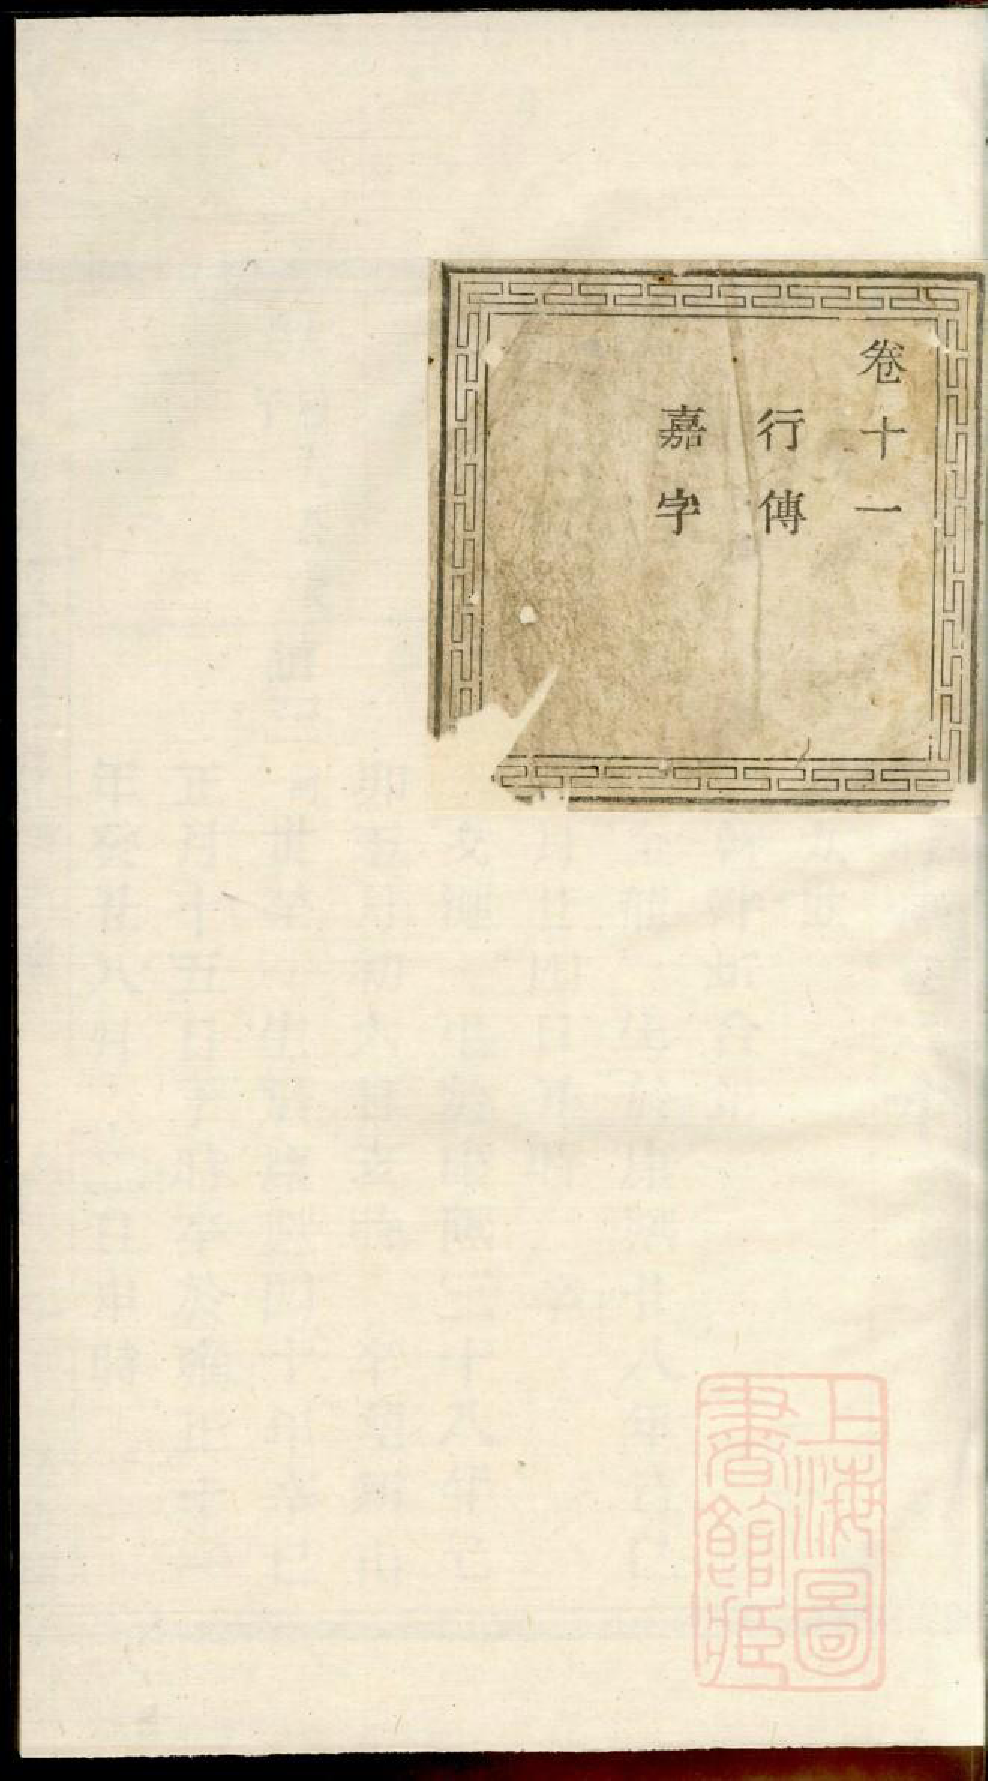 卷十一
行傳
嘉字
上海圖
書館藏